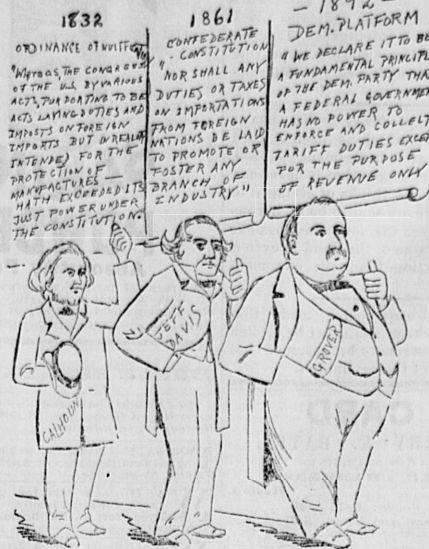 1832
ORDINANCE OF NULLIFICATION
"WHEREAS, THE CONGRESS
OF THE U.S. BY VARIOUS
ACTS, PURPORTING TO BE
ACTS LAYING DUTIES AND
IMPOSTS ON FOREIGN
IMPORTS BUT IN REALITY
INTENDED FOR THE
PROTECTION OF
MANUFACTURES —
HATH EXCEEDED ITS
JUST POWER UNDER
THE CONSTITUTION.
1861
CONFEDERATE
- CONSTITUTION
"NOR SHALL ANY
DUTIES OR TAXES
ON IMPORTATIONS
FROM FOREIGN
NATIONS BE LAID
TO PROMOTE OR
FOSTER ANY
BRANCH OF
INDUSTRY"
- 1892 -
DEM. PLATFORM
"WE DECLARE IT TO BE
A FUNDAMENTAL PRINCIPLE
OF THE DEM. PARTY THAT
A FEDERAL GOVERNMENT
HAS NO POWER TO
ENFORCE AND COLLECT
TARIFF DUTIES EXCEPT
FOR THE PURPOSE
OF REVENUE ONLY
CALHOUN
JEFF
DAVIS
GROVER